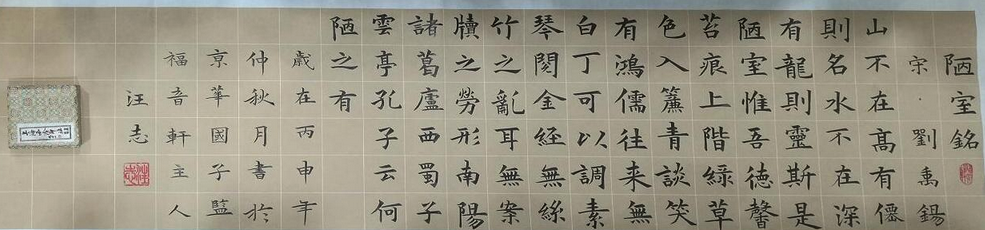 陋室銘
宋 劉禹錫
山不在高有僊
則名水不在深
有龍則靈斯是
陋室惟吾徳馨
苔痕上階綠草
色入簾青談笑
有鴻儒往来無
白丁可以調素
琴閱金経無絲
竹之亂耳無案
牘之勞形南陽
諸葛廬西蜀子
雲亭孔子云何
陋之有
歲在丙申年
仲秋月書於
京華國子監
福音軒主人
汪志